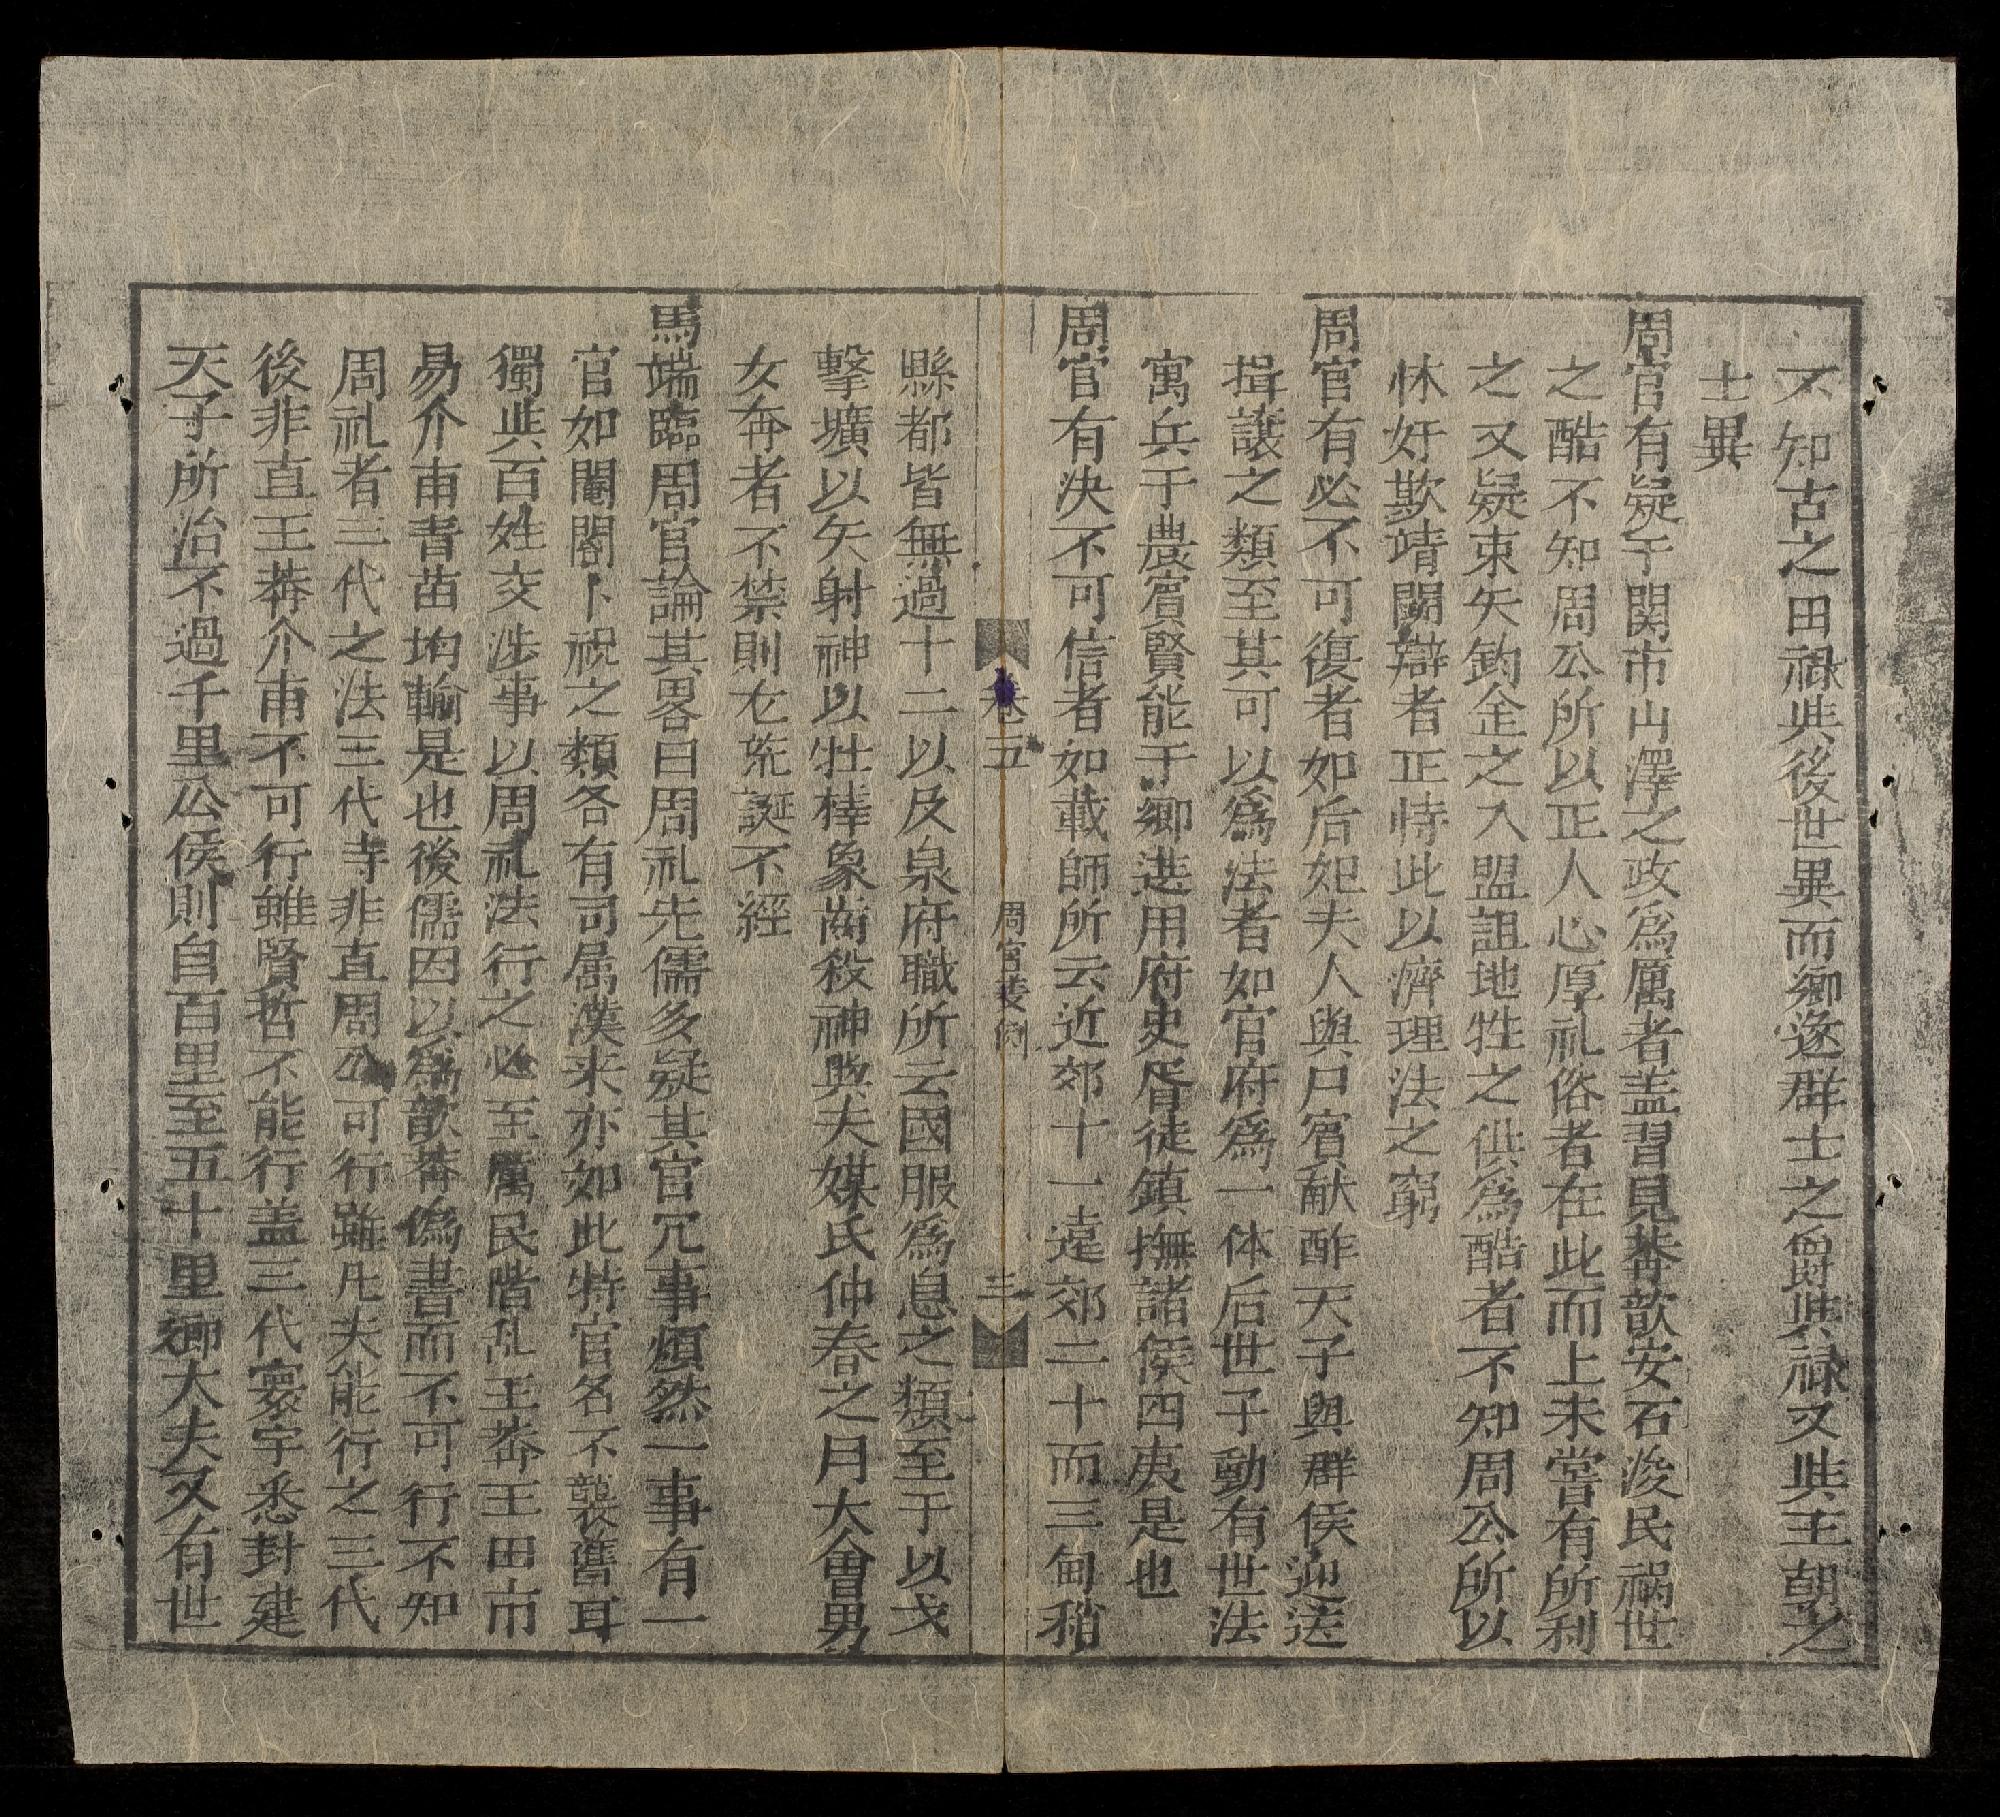 不知古之田禄與後世異而鄉遂群士之爵與禄又與王朝之
士異
周官有疑于関市山澤之政為厲者盖習見莽歆安石浚民禍世
之酷不知周公所以正人心厚礼俗者在此而上未嘗有所利
之又疑束矢鈞金之入盟詛地牲之供為酷者不知周公所以
怵奸欺靖闘辯者正恃此以濟理法之窮
周官有必不可復者如后妃夫人與尸賔献酢天子與群侯迎送
揖讓之類至其可以為法者如官府為一体后世子動有世法
寓兵于農賔賢能于鄉选用府史胥徒鎮撫諸侯四夷是也
周官有决不可信者如載師所云近郊十一遠郊二十而三甸稍
卷五
周官㝹例
三
縣都皆無過十二以及泉府職所云國服為息之類至于以戈
擊壙以矢射神以牡橭象齒殺神與夫媒氏仲春之月大會男
女奔者不禁則尤荒誕不經
馬端臨周官論其畧曰周礼先儒多疑其官冗事煩然一事有一
官如閽閣卜祝之類各有司属漢来亦如此特官名不襲舊耳
獨與百姓交涉事以周礼法行之必至厲民階乱王莽王田市
易介甫青苗均輸是也後儒因以為歆莽偽書而不可行不知
周礼者三代之法三代時非直周公可行雖凡夫能行之三代
後非直王莽介甫不可行雖賢哲不能行盖三代寰宇悉封建
天子所治不過千里公侯則自百里至五十里卿大夫又有世